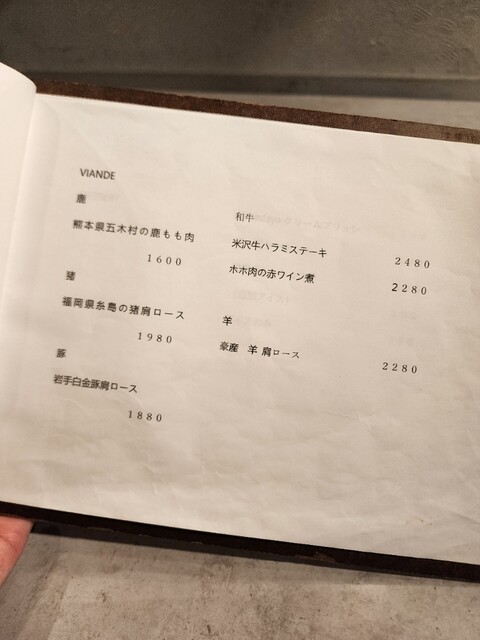 VIANDE
鹿
熊本県五木村の鹿もも肉
1600
猪
福岡県糸島の猪肩ロース
1980
豚
岩手白金豚肩ロース
1880
和牛
米沢牛ハラミステーキ
2480
ホホ肉の赤ワイン煮
2280
羊
豪産 羊 肩ロース
2280